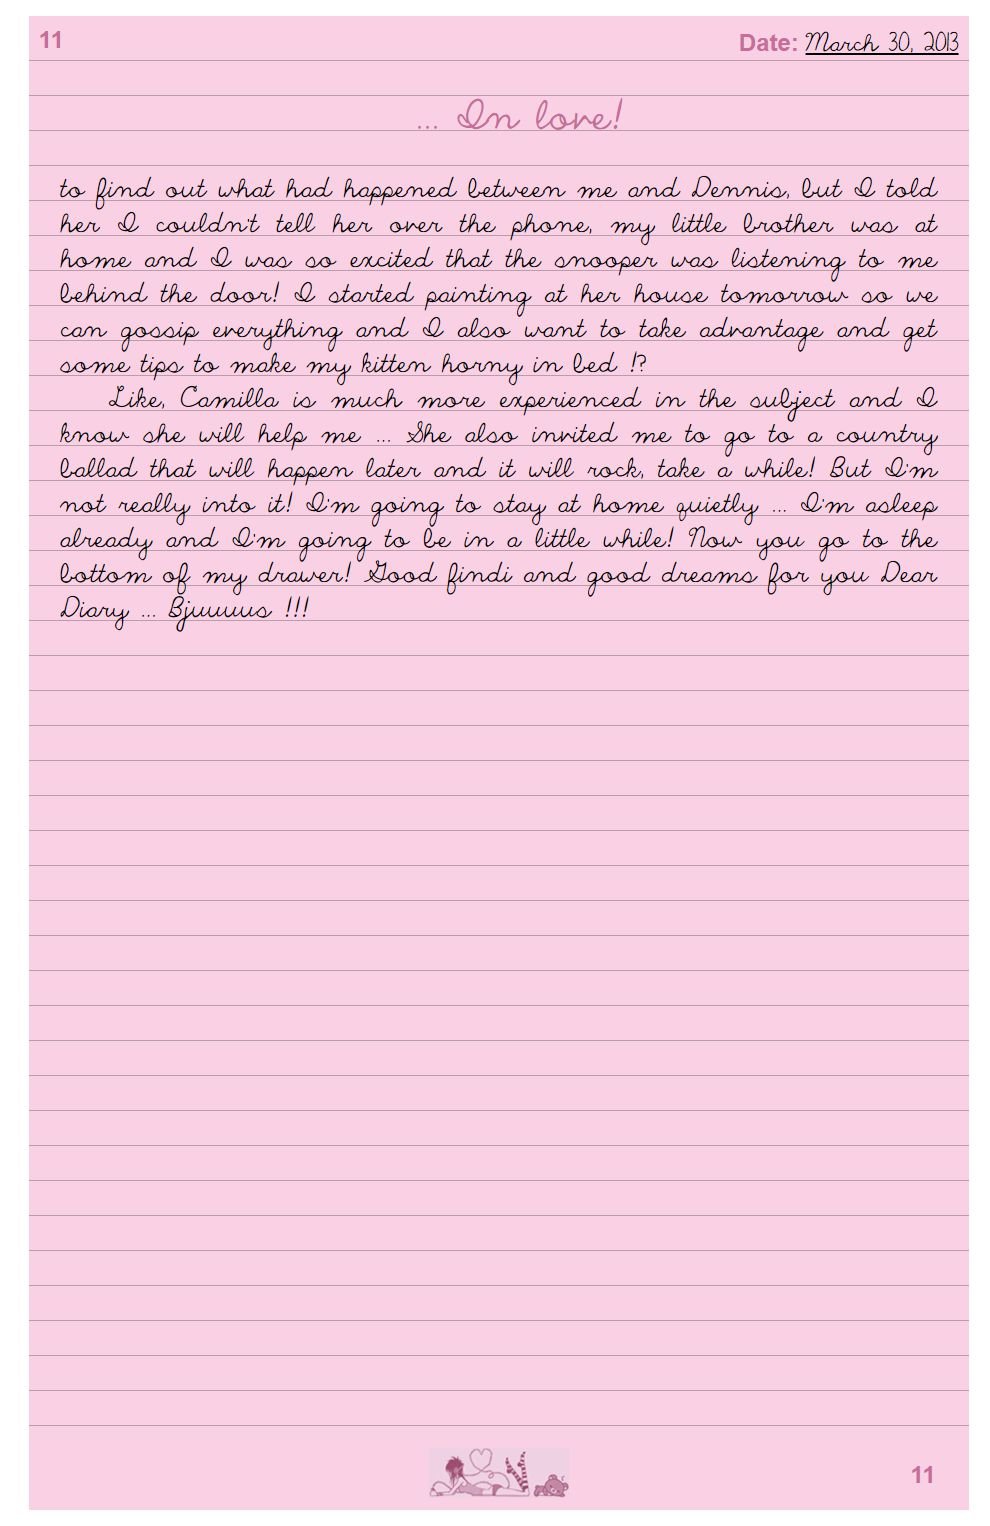 11
Date: March 30, 2013
... In love!
to find out what had happened between me and Dennis, but I told
her I couldn't tell her over the phone, my little brother was at
home and I was so excited that the snooper was listening to me
behind the door! I started painting at her house tomorrow so we
can gossip everything and I also want to take advantage and get
some tips to make my kitten horny in bed !?
Like, Camilla is much more experienced in the subject and I
know she will help me ... She also invited me to go to a country
ballad that will happen later and it will rock, take a while! But I'm
not really into it! I'm going to stay at home quietly ... I'm asleep
already and I'm going to be in a little while! Now you go to the
bottom of my drawer! Good findi and good dreams for you Dear
Diary ... Bjuuuus !!!
11